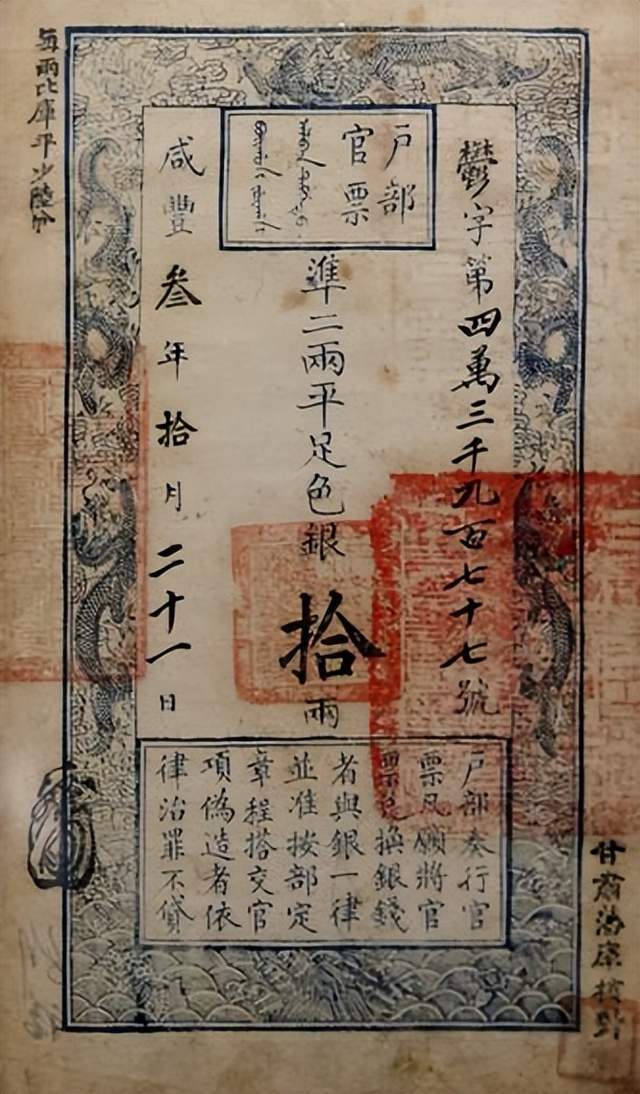 户部
官票
鬱字第四萬三千九百七十七號
準二兩平足色銀拾兩
咸豐叁年拾月二十一日
户部奏行官
票凡願將官
票兑換銀錢
者與銀一律
並准按部定
章程搭交官
項偽造者依
律治罪不貸
甘肅藩庫
每兩比庫平少陸分